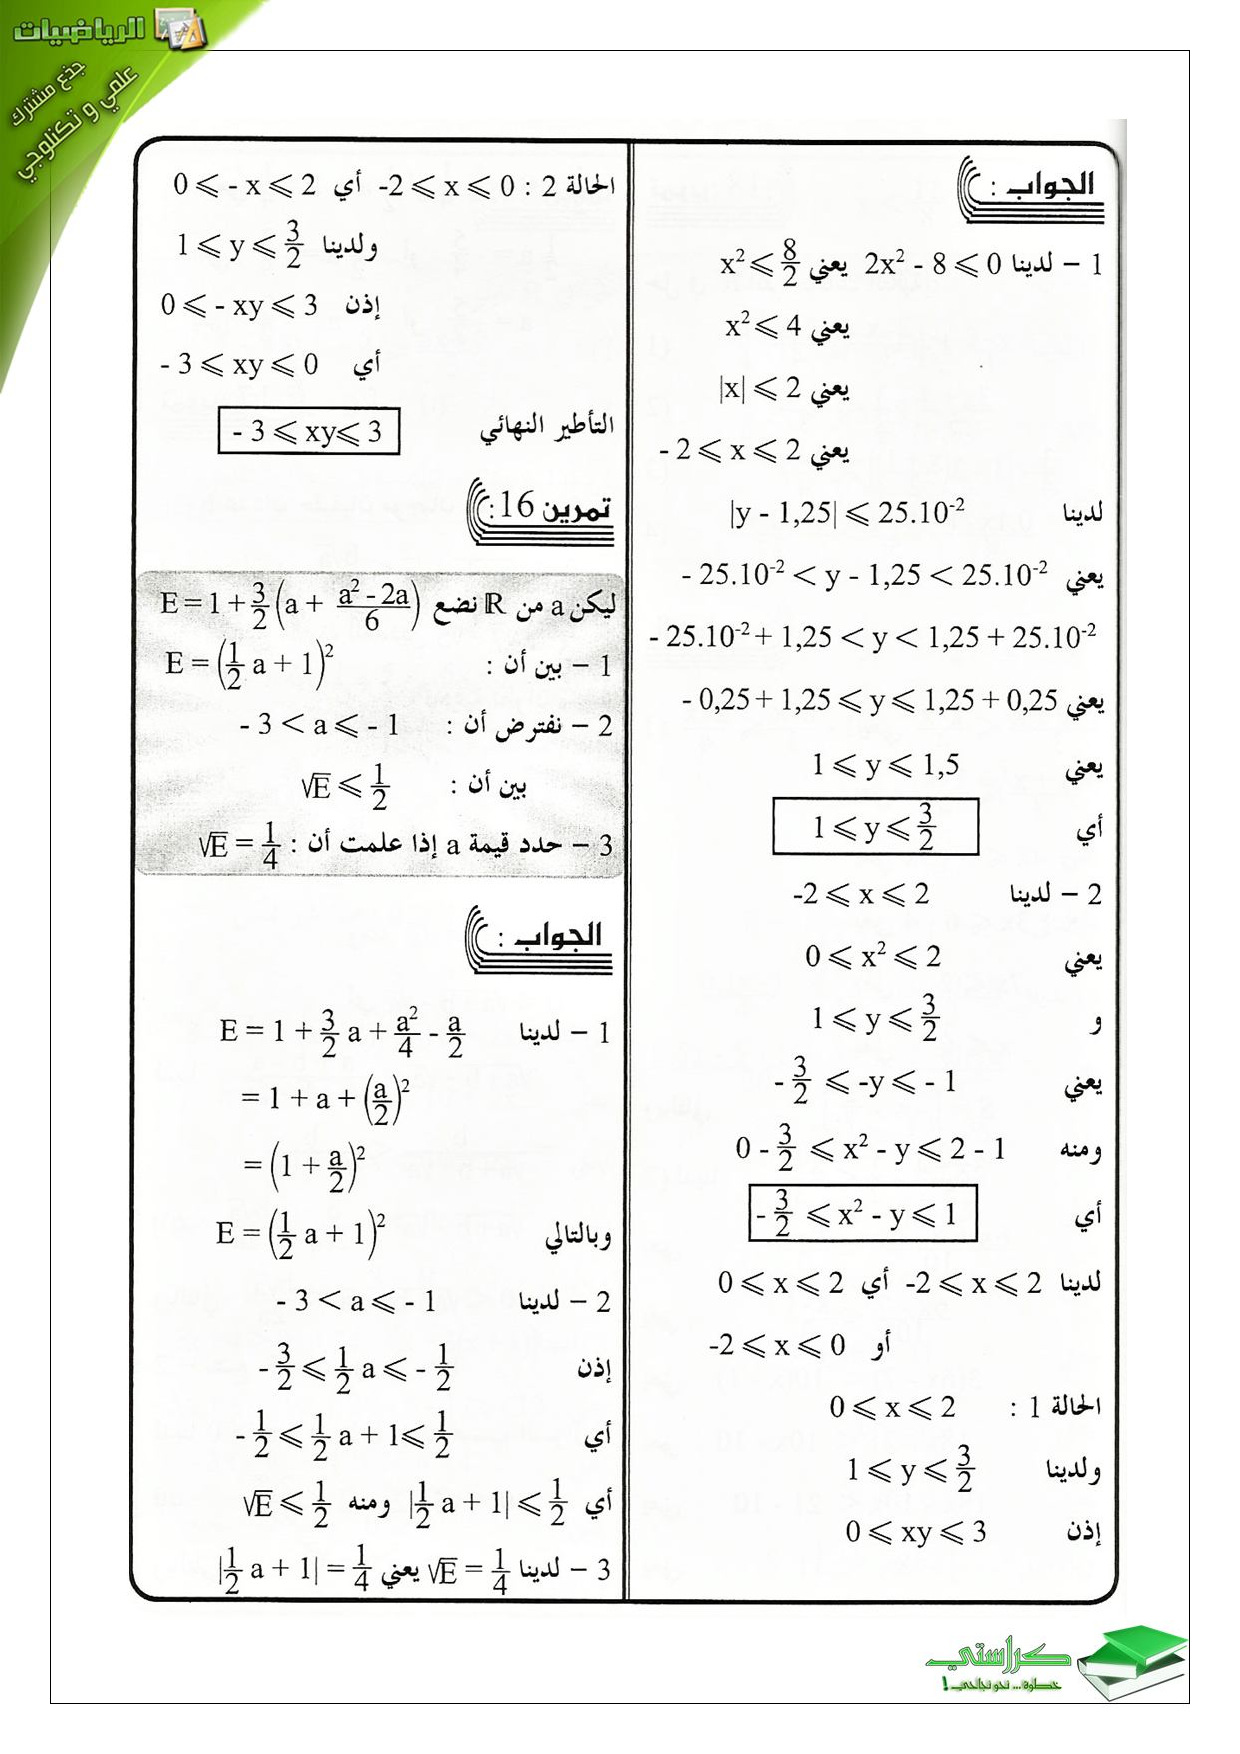 الرياضيات
جذع مشترك
علمي و تكنلوجي
الجواب :
1 – لدينا 2x² - 8 ⩽ 0 يعني x² ⩽ 8/2
يعني x² ⩽ 4
يعني |x| ⩽ 2
يعني - 2 ⩽ x ⩽ 2
لدينا |y - 1,25| ⩽ 25.10⁻²
يعني - 25.10⁻² < y - 1,25 < 25.10⁻²
- 25.10⁻² + 1,25 < y < 1,25 + 25.10⁻²
يعني - 0,25 + 1,25 ⩽ y ⩽ 1,25 + 0,25
يعني 1 ⩽ y ⩽ 1,5
أي 1 ⩽ y ⩽ 3/2
2 – لدينا -2 ⩽ x ⩽ 2
يعني 0 ⩽ x² ⩽ 2
و 1 ⩽ y ⩽ 3/2
يعني - 3/2 ⩽ -y ⩽ - 1
ومنه 0 - 3/2 ⩽ x² - y ⩽ 2 - 1
أي - 3/2 ⩽ x² - y ⩽ 1
لدينا -2 ⩽ x ⩽ 2 أي 0 ⩽ x ⩽ 2
أو -2 ⩽ x ⩽ 0
الحالة 1 : 0 ⩽ x ⩽ 2
ولدينا 1 ⩽ y ⩽ 3/2
إذن 0 ⩽ xy ⩽ 3
الحالة 2 : -2 ⩽ x ⩽ 0 أي 0 ⩽ - x ⩽ 2
ولدينا 1 ⩽ y ⩽ 3/2
إذن 0 ⩽ - xy ⩽ 3
أي - 3 ⩽ xy ⩽ 0
التأطير النهائي - 3 ⩽ xy ⩽ 3
تمرين 16 :
ليكن a من ℝ نضع E = 1 + 3/2 (a + (a² - 2a)/6)
1 – بين أن : E = (1/2 a + 1)²
2 – نفترض أن : - 3 < a ⩽ - 1
بين أن : √E ⩽ 1/2
3 – حدد قيمة a إذا علمت أن : √E = 1/4
الجواب :
1 – لدينا E = 1 + 3/2 a + a²/4 - a/2
= 1 + a + (a/2)²
= (1 + a/2)²
وبالتالي E = (1/2 a + 1)²
2 – لدينا - 3 < a ⩽ - 1
إذن - 3/2 ⩽ 1/2 a ⩽ - 1/2
أي - 1/2 ⩽ 1/2 a + 1 ⩽ 1/2
أي |1/2 a + 1| ⩽ 1/2 ومنه √E ⩽ 1/2
3 – لدينا √E = 1/4 يعني |1/2 a + 1| = 1/4
كراستي
خطوة... نحو نجاحي !